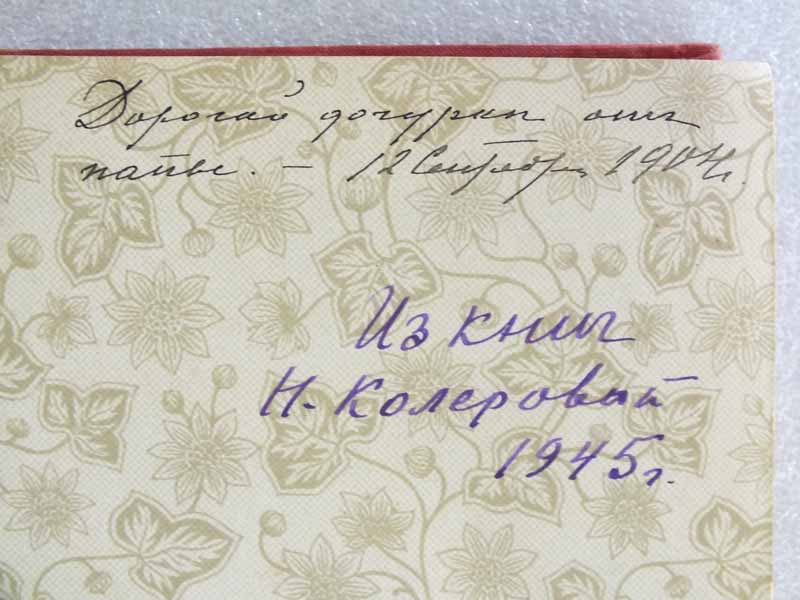 Дорогой дочурки отъ
папы. — 12 Сентября 1904 г.
Из книг
Н. Колеровой
1945 г.